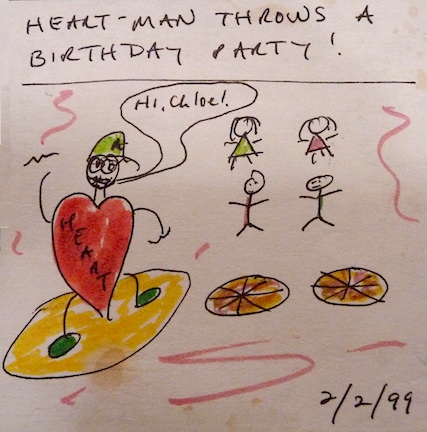 HEART-MAN THROWS A
BIRTHDAY PARTY!
Hi, Chloe!
A
HEART
2/2/99